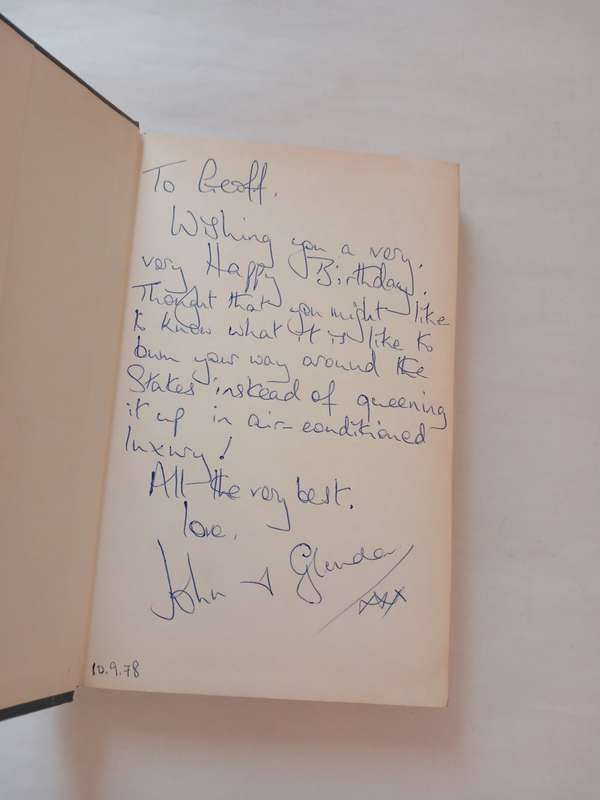 To Geoff.
Wishing you a very,
very Happy Birthday.
Thought that you might like
to know what it is like to
bum your way around the
States instead of queening
it up in air-conditioned
luxury!
All the very best.
love,
John & Glenda
xxx
10.9.78